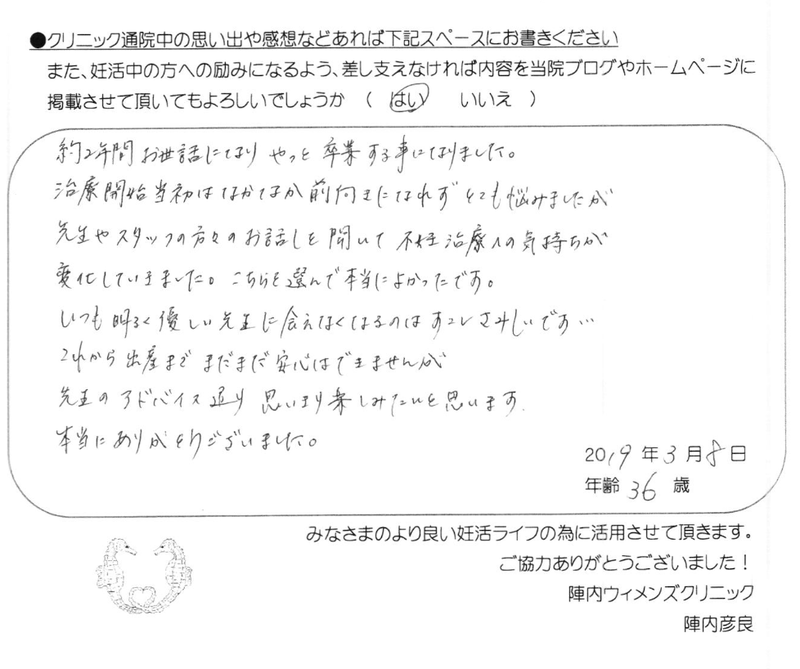 ●クリニック通院中の思い出や感想などあれば下記スペースにお書きください
また、妊活中の方への励みになるよう、差し支えなければ内容を当院ブログやホームページに
掲載させて頂いてもよろしいでしょうか （ はい いいえ ）
約2年間お世話になり やっと 卒業する事になりました。
治療開始当初はなかなか前向きになれず とても悩みましたが
先生やスタッフの方々のお話しを聞いて 不妊治療への気持ちが
変化していきました。こちらを選んで本当によかったです。
いつも明るく優しい先生に会えなくなるのはすこしさみしいです…
これから出産まで まだまだ安心はできませんが
先生のアドバイス通り 思いきり楽しみたいと思います.
本当にありがとうございました。
2019年3月8日
年齢 36 歳
みなさまのより良い妊活ライフの為に活用させて頂きます。
ご協力ありがとうございました！
陣内ウィメンズクリニック
陣内彦良